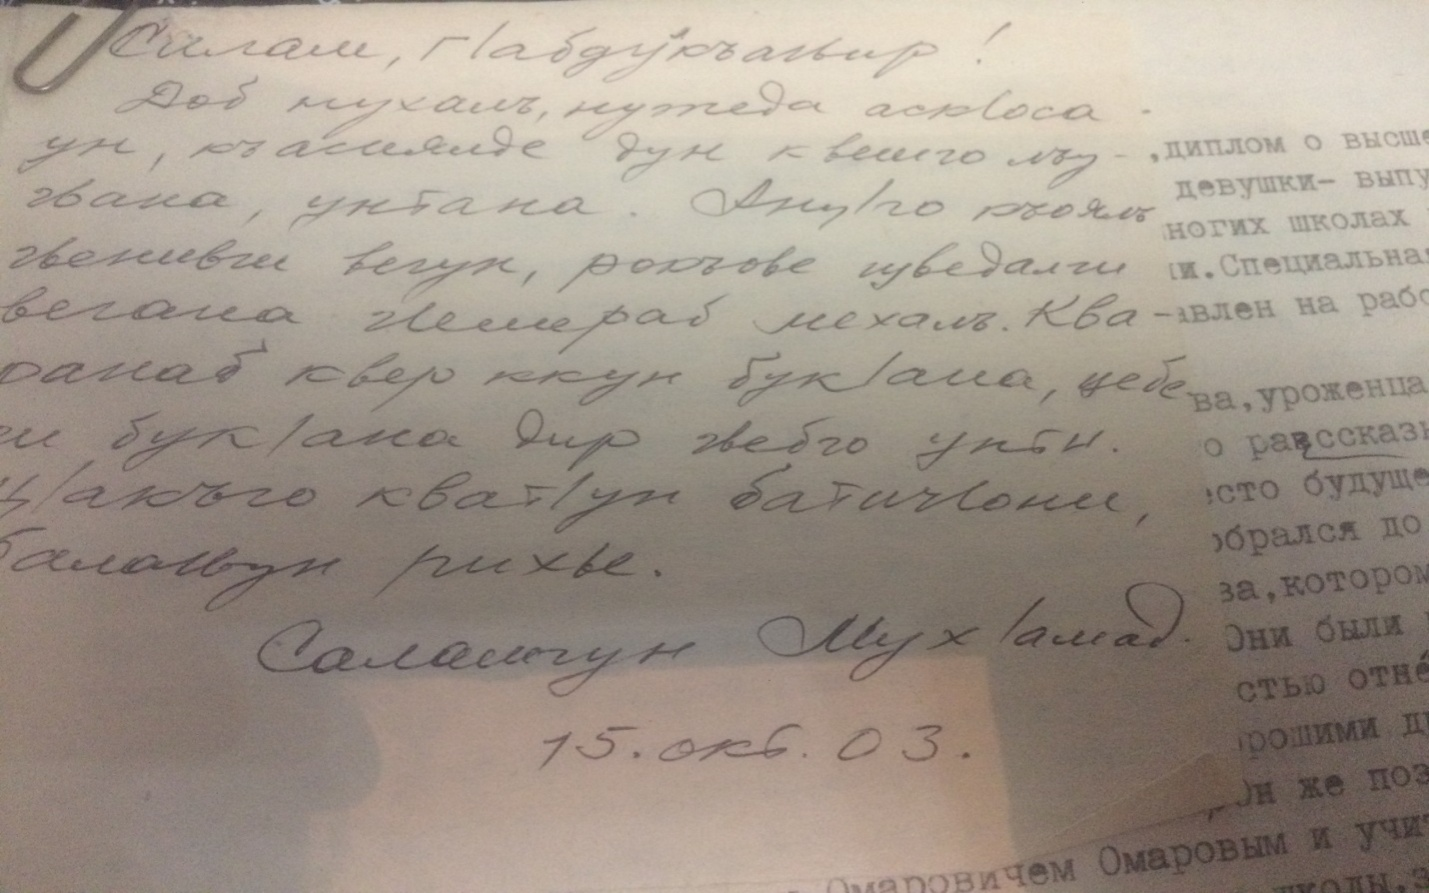 Салам, гIабдулкъагьир!
Доб мухалъ, нужеда аскIоса-
ун, къасиялде дун квешго лъу-
гьана, унтана. АнцIго къоялъ
гьенивги вегун, рокъове щведалги
вегана гьелщраб мехалъ. Ква-
ранаб квер ккун букIана, цебе
ги букIана дир гьебго унти.
ЦIакъго кватIун батичIони,
балагьун рихье.
Саламгун МухIамад.
15. окт. 03.
,диплом о высше
девушки- выпу
ногих школах
и.Специальная
авлен на рабо
ва,уроженца
о рассказы
есто будуще
обрался до
ва,котором
Они были
стью отнё
рошими д
Он же поз
Омаровичем Омаровым и учит
школы,з